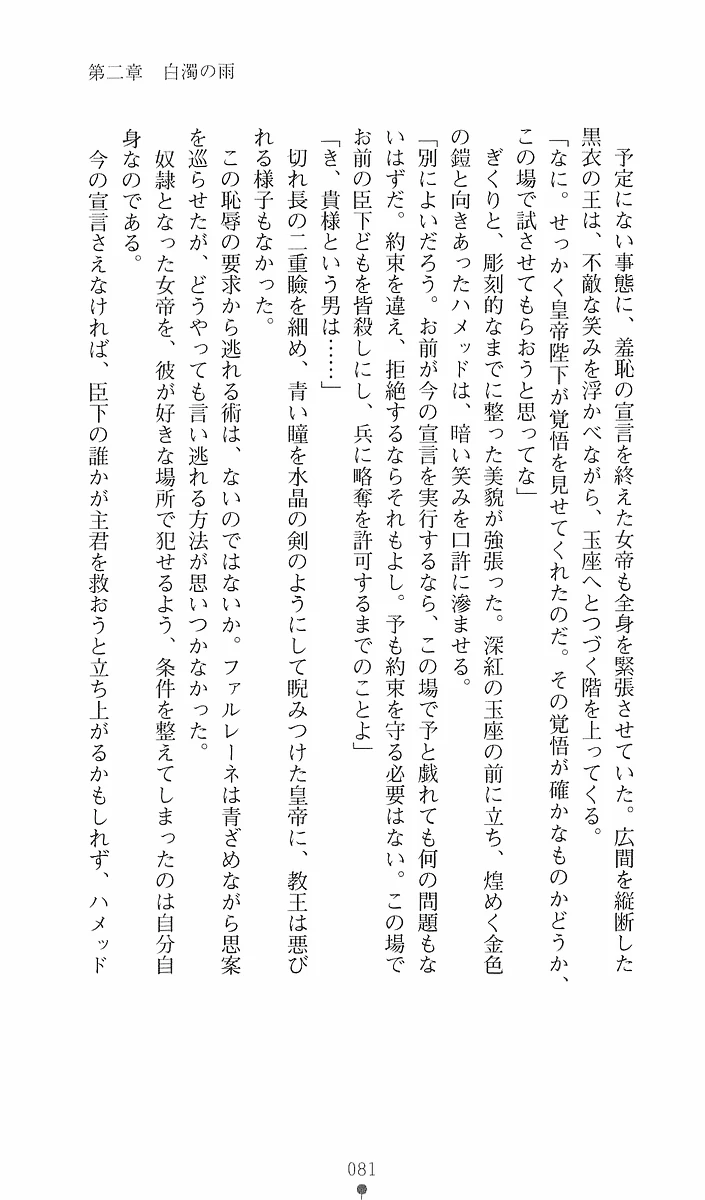 第二章　白濁の雨
　予定にない事態に、羞恥の宣言を終えた女帝も全身を緊張させていた。広間を縦断した
黒衣の王は、不敵な笑みを浮かべながら、玉座へとつづく階を上ってくる。
「なに。せっかく皇帝陛下が覚悟を見せてくれたのだ。その覚悟が確かなものかどうか、
この場で試させてもらおうと思ってな」
　ぎくりと、彫刻的なまでに整った美貌が強張った。深紅の玉座の前に立ち、煌めく金色
の鎧と向きあったハメッドは、暗い笑みを口許に滲ませる。
「別によいだろう。お前が今の宣言を実行するなら、この場で予と戯れても何の問題もな
いはずだ。約束を違え、拒絶するならそれもよし。予も約束を守る必要はない。この場で
お前の臣下どもを皆殺しにし、兵に略奪を許可するまでのことよ」
「き、貴様という男は……」
　切れ長の二重瞼を細め、青い瞳を水晶の剣のようにして睨みつけた皇帝に、教王は悪び
れる様子もなかった。
　この恥辱の要求から逃れる術は、ないのではないか。ファルレーネは青ざめながら思案
を巡らせたが、どうやっても言い逃れる方法が思いつかなかった。
　奴隷となった女帝を、彼が好きな場所で犯せるよう、条件を整えてしまったのは自分自
身なのである。
　今の宣言さえなければ、臣下の誰かが主君を救おうと立ち上がるかもしれず、ハメッド
081